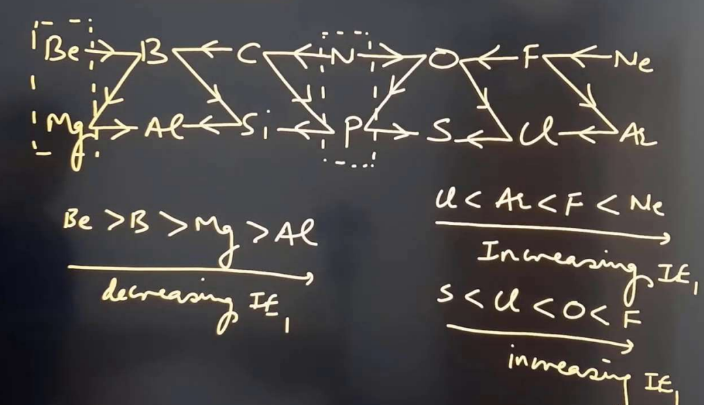 Be → B ← C ← N → O ← F ← Ne
Mg → Al ← Si ← P → S ← Cl ← Ar
Be > B > Mg > Al
decreasing IE₁
Cl < Ar < F < Ne
Increasing IE₁
S < Cl < O < F
increasing IE₁